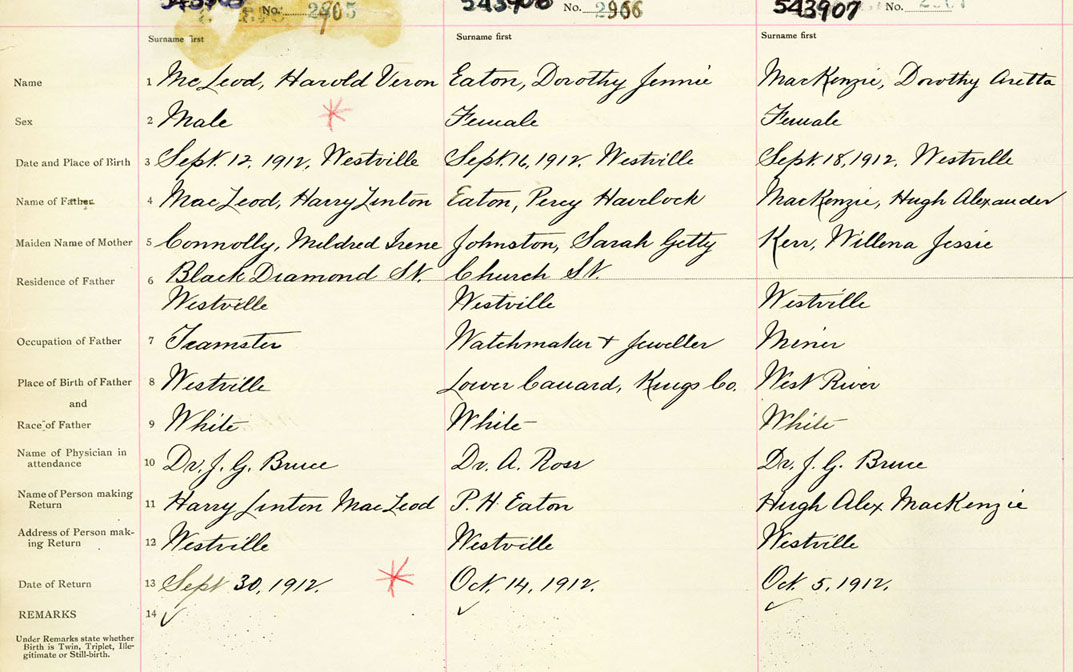 No. 2905 543906 No. 2966 543907 No.
Surname first Surname first Surname first
Name 1 McLeod, Harold Veron Eaton, Dorothy Jennie MacKenzie, Dorothy Aretta
Sex 2 Male Female Female
Date and Place of Birth 3 Sept. 12, 1912, Westville Sept. 16, 1912. Westville Sept. 18, 1912. Westville
Name of Father 4 MacLeod, Harry Linton Eaton, Percy Havelock MacKenzie, Hugh Alexander
Maiden Name of Mother 5 Connolly, Mildred Irene Johnston, Sarah Getty Kerr, Willena Jessie
Residence of Father 6 Black Diamond St. Church St.
Westville Westville Westville
Occupation of Father 7 Teamster Watchmaker + Jeweller Miner
Place of Birth of Father 8 Westville Lower Canard, Kings Co. West River
and
Race of Father 9 White White White
Name of Physician in
attendance 10 Dr. J. G. Bruce Dr. A. Ross Dr. J. G. Bruce
Name of Person making
Return 11 Harry Linton MacLeod P. H. Eaton Hugh Alex MacKenzie
Address of Person mak-
ing Return 12 Westville Westville Westville
Date of Return 13 Sept 30, 1912. Oct. 14, 1912. Oct. 5, 1912.
REMARKS 14
Under Remarks state whether
Birth is Twin, Triplet, Ille-
gitimate or Still-birth.